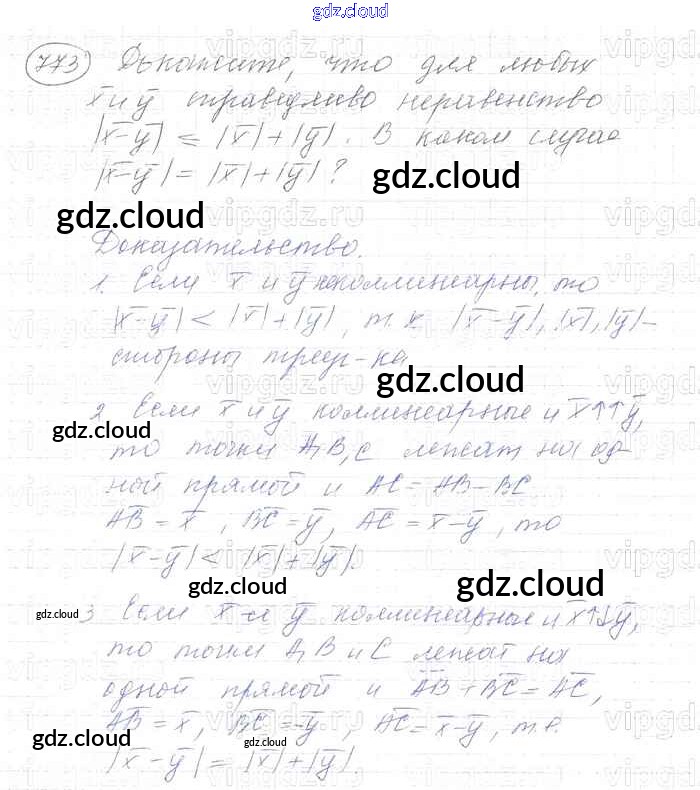 gdz.cloud
773 Докажите, что для любых
x̅ и y̅ справедливо неравенство
|x̅-y̅| ≤ |x̅|+|y̅|. В каком случае
|x̅-y̅| = |x̅|+|y̅|?
gdz.cloud
gdz.cloud
Доказательство.
1. Если x̅ и y̅ неколлинеарны, то
|x̅-y̅| < |x̅|+|y̅|, т.к. |x̅-y̅|, |x̅|, |y̅| -
стороны треуг-ка
gdz.cloud
2 Если x̅ и y̅ коллинеарные и x̅↑↑y̅,
gdz.cloud
то точки A,B,C лежат на од-
ной прямой и AC = AB - BC
A̅B̅ = x̅, B̅C̅ = y̅, A̅C̅ = x̅-y̅, то
|x̅-y̅| < |x̅|+|y̅|.
gdz.cloud
gdz.cloud
gdz.cloud
3 Если x̅ и y̅ коллинеарные и x̅↑↓y̅,
то точки A,B и C лежат на
одной прямой и A̅B̅ + B̅C̅ = A̅C̅,
A̅B̅ = x̅, B̅C̅ = -y̅, A̅C̅ = x̅-y̅, т.е.
gdz.cloud
gdz.cloud
|x̅-y̅| = |x̅|+|y̅|
vipgdz.ru